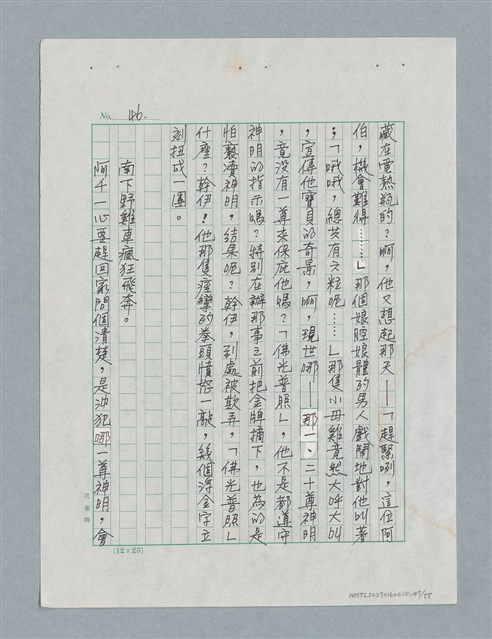 No. 46.
藏在電熱絲的？啊，他又想起那天——「趕緊咧，這位阿
伯，機會難得……」那個娘腔娘體的男人戲鬧地對他叫著
；「哦哦，總共有六粒呢……」那隻小母雞竟然大呼大叫
，宣傳他寶貝的奇景，啊，現世哪——那一、二十尊神明
，竟沒有一尊來保庇他嗎？「佛光普照」，他不是都遵守
神明的指示嗎？特別在辦那事之前把金牌摘下，也為的是
怕褻瀆神明，結果呢？幹伊，到處被欺弄，「佛光普照」
什麼？幹伊！他那隻痙攣的拳頭憤怒一敲，幾個浮金字立
刻扭成一團。
南下野雞車瘋狂飛奔。
阿千一心要趕回家問個清楚，是沖犯哪一尊神明，會
(12×25)
NMTL20230160010-047/55